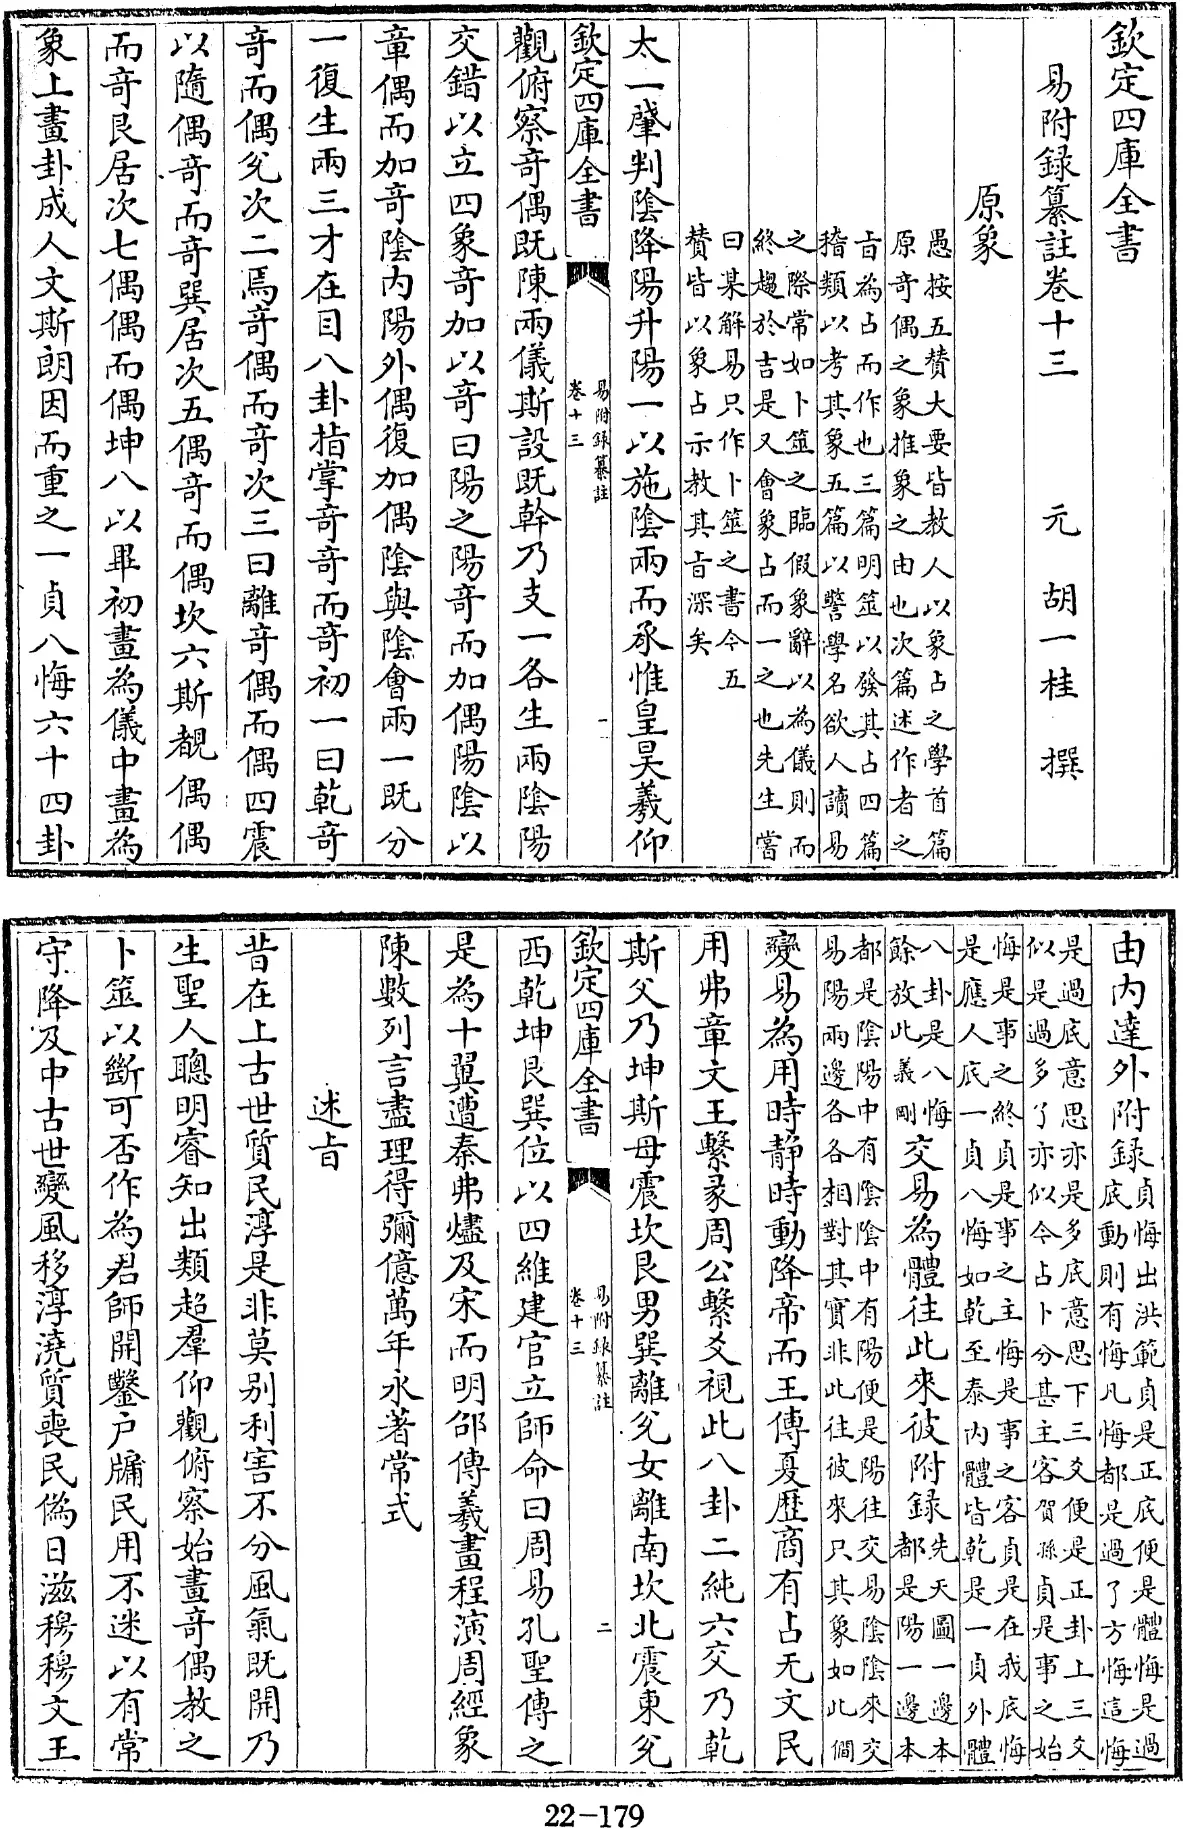 欽定四庫全書
易附録纂註卷十三　元　胡一桂　撰
原象
愚按五贊大要皆教人以象占之學首篇
原奇偶之象推象之由也次篇述作者之
旨為占而作也三篇明筮以發其占四篇
稽類以考其象五篇以警學名欲人讀易
之際常如卜筮之臨假象辭以為儀則而
終趨於吉是又會象占而一之也先生嘗
曰某解易只作卜筮之書今五
贊皆以象占示教其旨深矣
太一肇判陰降陽升陽一以施陰兩而承惟皇昊羲仰
欽定四庫全書
易附録纂註
卷十三
一
觀俯察奇偶既陳兩儀斯設既幹乃支一各生兩陰陽
交錯以立四象奇加以奇曰陽之陽奇而加偶陽陰以
章偶而加奇陰内陽外偶復加偶陰與陰會兩一既分
一復生兩三才在目八卦指掌奇奇而奇初一曰乾奇
奇而偶兊次二焉奇偶而奇次三曰離奇偶而偶四震
以隨偶奇而奇巽居次五偶奇而偶坎六斯覩偶偶
而奇艮居次七偶偶而偶坤八以畢初畫為儀中畫為
象上畫卦成人文斯朗因而重之一貞八悔六十四卦
由内達外附録
貞悔出洪範貞是正底便是體悔是過
底動則有悔凡悔都是過了方悔這悔
是過底意思亦是多底意思下三爻便是正卦上三爻
似是過多了亦似今占卜分甚主客賀孫貞是事之始
悔是事之終貞是事之主悔是事之客貞是在我底悔
是應人底一貞八悔如乾至泰内體皆乾是一貞外體
八卦是八悔
餘放此義剛
交易為體往此來彼附録
先天圖一邊本
都是陽一邊本
都是陰陽中有陰陰中有陽便是陽往交易陰陰來交
易陽兩邊各各相對其實非此往彼來只其象如此僩
變易為用時静時動降帝而王傳夏歴商有占无文民
用弗章文王繫彖周公繫爻視此八卦二純六交乃乾
斯父乃坤斯母震坎艮男巽離兊女離南坎北震東兊
欽定四庫全書
易附録纂註
卷十三
二
西乾坤艮巽位以四維建官立師命曰周易孔聖傳之
是為十翼遭秦弗燼及宋而明邵傳羲畫程演周經象
陳數列言盡理得彌億萬年永著常式
述旨
昔在上古世質民淳是非莫别利害不分風氣既開乃
生聖人聰明睿知出類超羣仰觀俯察始畫奇偶教之
卜筮以斷可否作為君師開鑿戶牖民用不迷以有常
守降及中古世變風移淳澆質喪民偽日滋穆穆文王
22-179